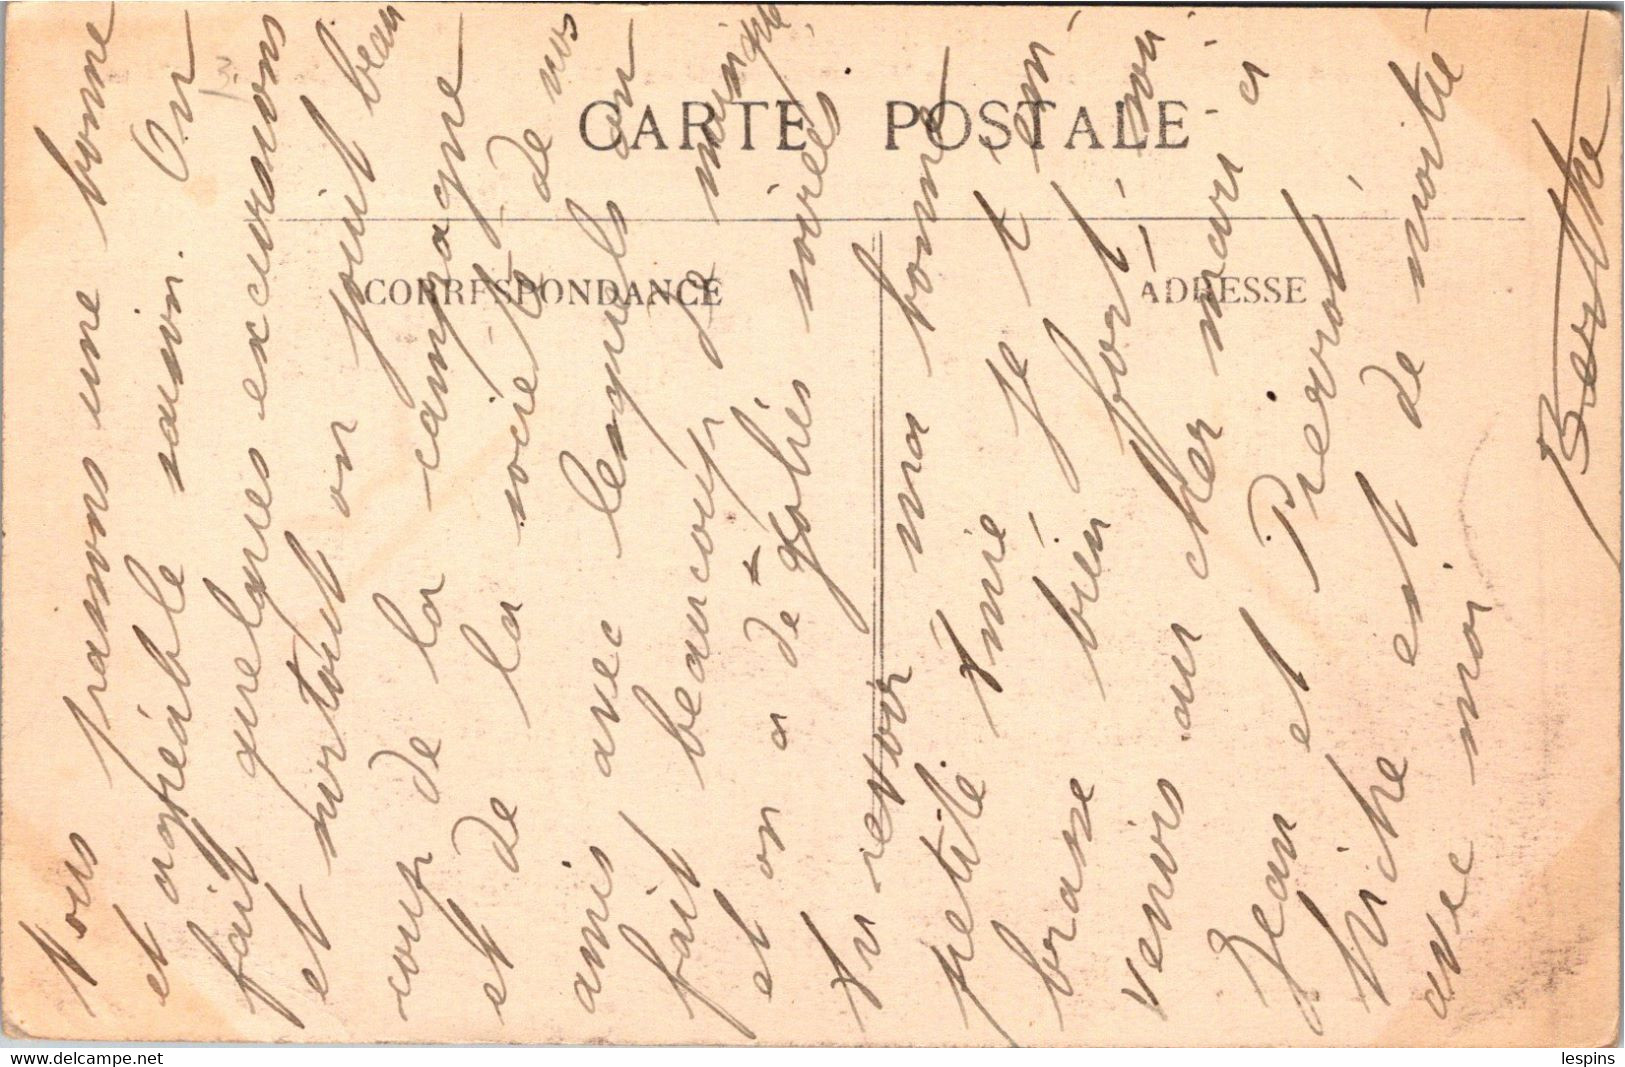 CARTE POSTALE
CORRESPONDANCE
ADRESSE
Nous passons une bonne
et agréable saison. On
fait quelques excursions
et surtout on jouit beau
coup de la campagne
et de la société de nos
amis avec lesquels on
fait beaucoup de musique
et on a de jolies soirées
Au revoir ma bonne
petite Amie je t'em
brasse bien fort mon
venirs au cher mari à
Jean et Pierrot
Miche est de moitié
avec moi
Berthe
www.delcampe.net
lespins